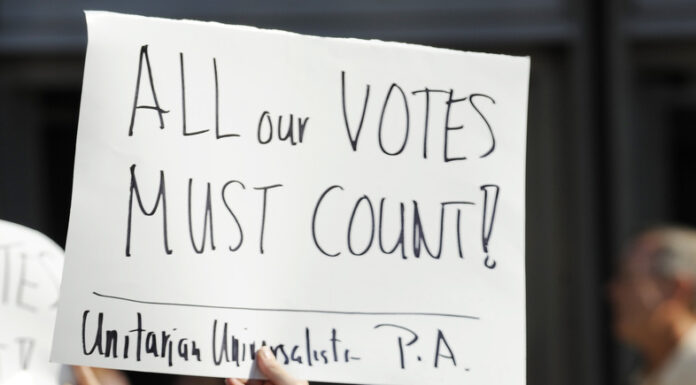 ALL our VOTES
MUST COUNT!
Unitarian Universalists P.A.
TES
NT!